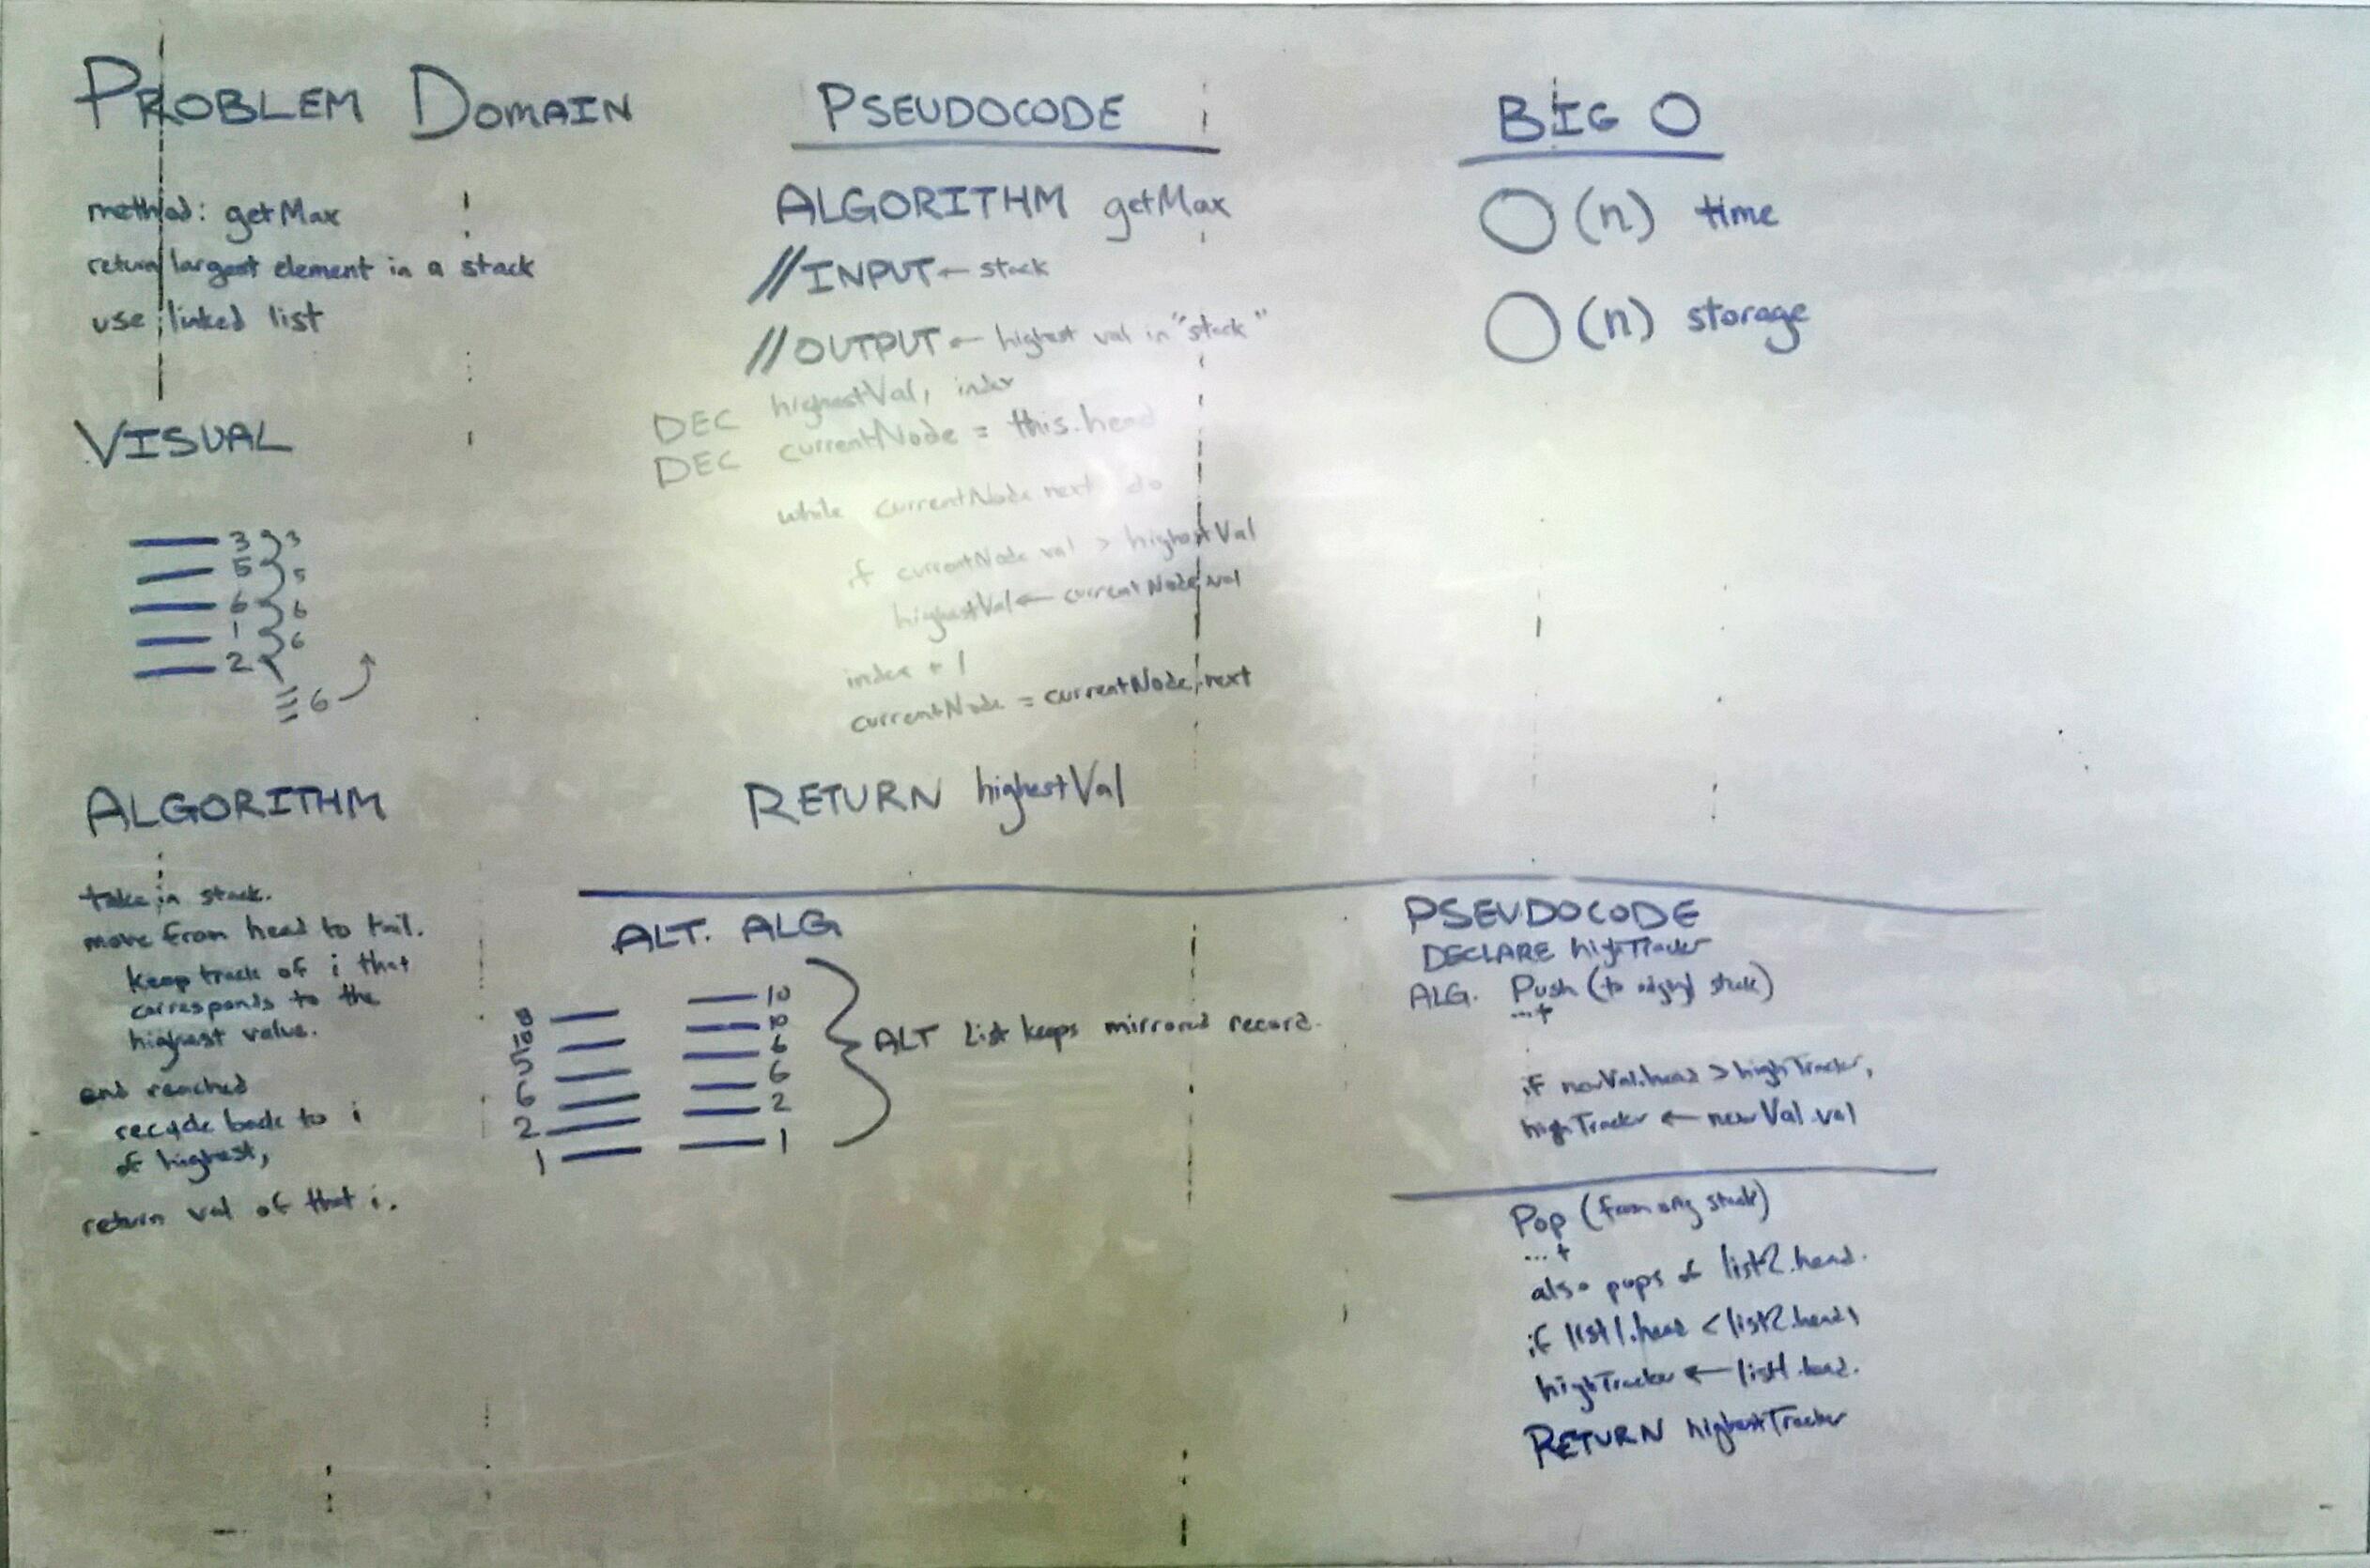 PROBLEM DOMAIN
method: getMax
return largest element in a stack
use linked list
VISUAL
3 3
5 5
6 6
1 6
2
6
ALGORITHM
take in stack.
move from head to tail.
keep track of i that
corresponds to the
highest value.
end reached
back to i
of highest,
return val of that i.
PSEUDOCODE
ALGORITHM getMax
//INPUT ← stack
//OUTPUT ← highest val in "stack"
DEC highestVal, index
DEC currentNode = this.head
while currentNode.next do
if currentNode.val > highestVal
highestVal ← currentNode.val
index + 1
currentNode = currentNode.next
RETURN highestVal
BIG O
O(n) time
O(n) storage
ALT. ALG
8 10
10 10
5 6
6 6
2 2
1 1
ALT list keeps mirrored record.
PSEUDOCODE
DECLARE highTracker
ALG. Push (to original stack)
...+
if newVal.head > highTracker,
highTracker ← newVal.val
Pop (from orig stack)
...+
also pops of list2.head.
if list1.head < list2.head,
highTracker ← list1.head.
RETURN highestTracker